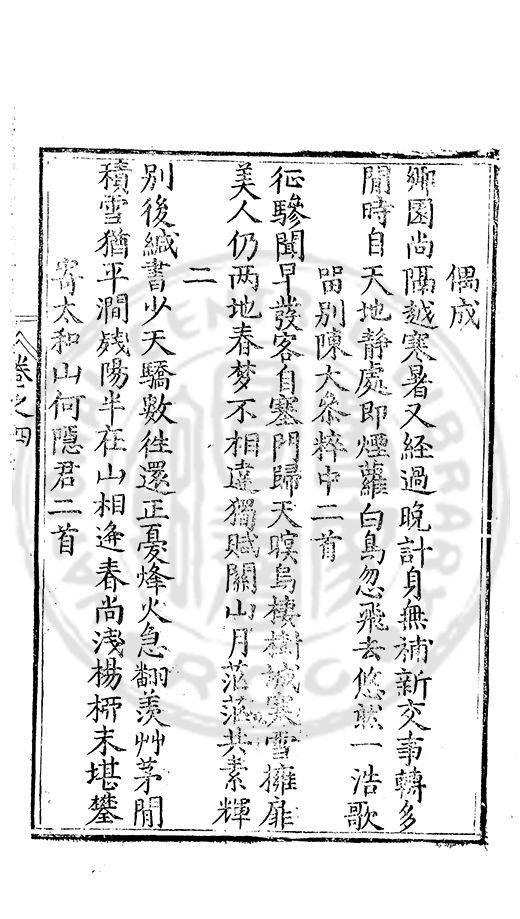 偶成
鄉園尚隔越寒暑又經過晚計身無補新交事轉多
閒時自天地靜處即煙蘿白鳥忽飛去悠然一浩歌
畱别陳大叅粹中二首
征驂聞早發客自塞門歸天暝烏棲樹城寒雪擁扉
美人仍两地春梦不相違獨賦關山月茫茫共素輝
二
别後緘書少天驕數徃還正憂烽火急翻羡艸茅閒
積雪猶平澗殘陽半在山相逢春尚淺楊栁未堪攀
寄太和山何隱君二首
卷之四